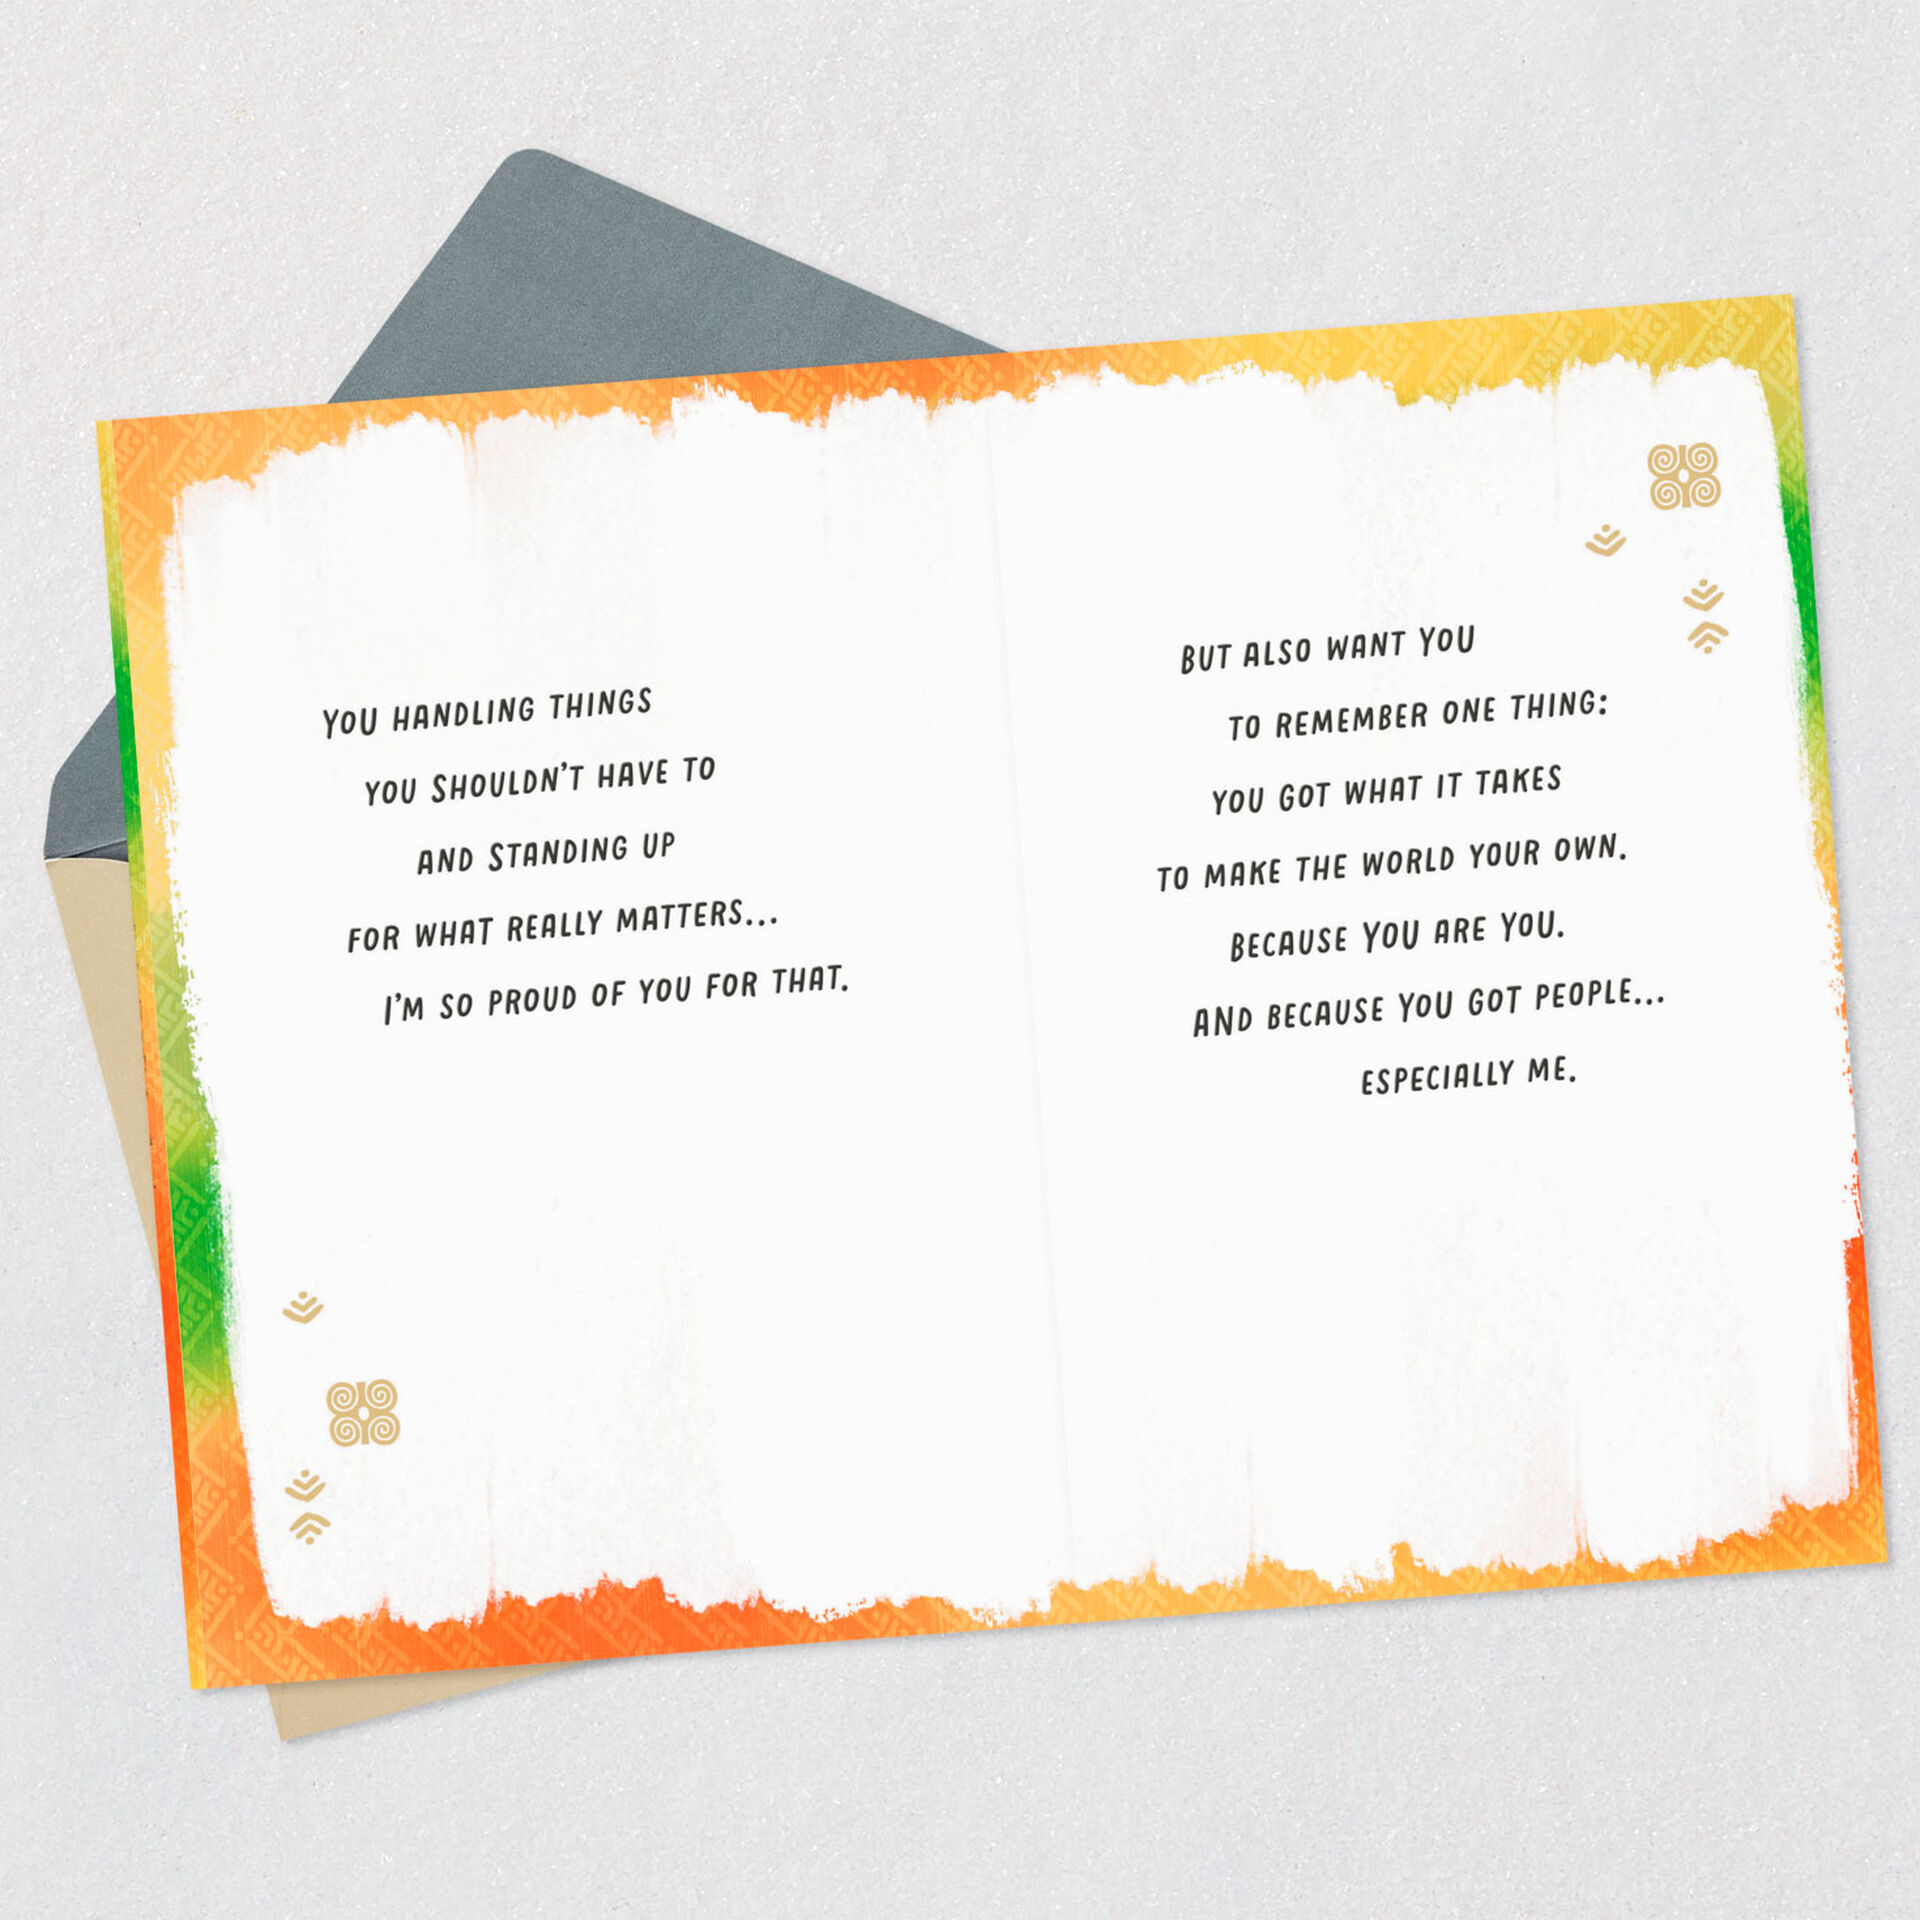 YOU HANDLING THINGS
YOU SHOULDN'T HAVE TO
AND STANDING UP
FOR WHAT REALLY MATTERS...
I'M SO PROUD OF YOU FOR THAT.
BUT ALSO WANT YOU
TO REMEMBER ONE THING:
YOU GOT WHAT IT TAKES
TO MAKE THE WORLD YOUR OWN.
BECAUSE YOU ARE YOU.
AND BECAUSE YOU GOT PEOPLE...
ESPECIALLY ME.